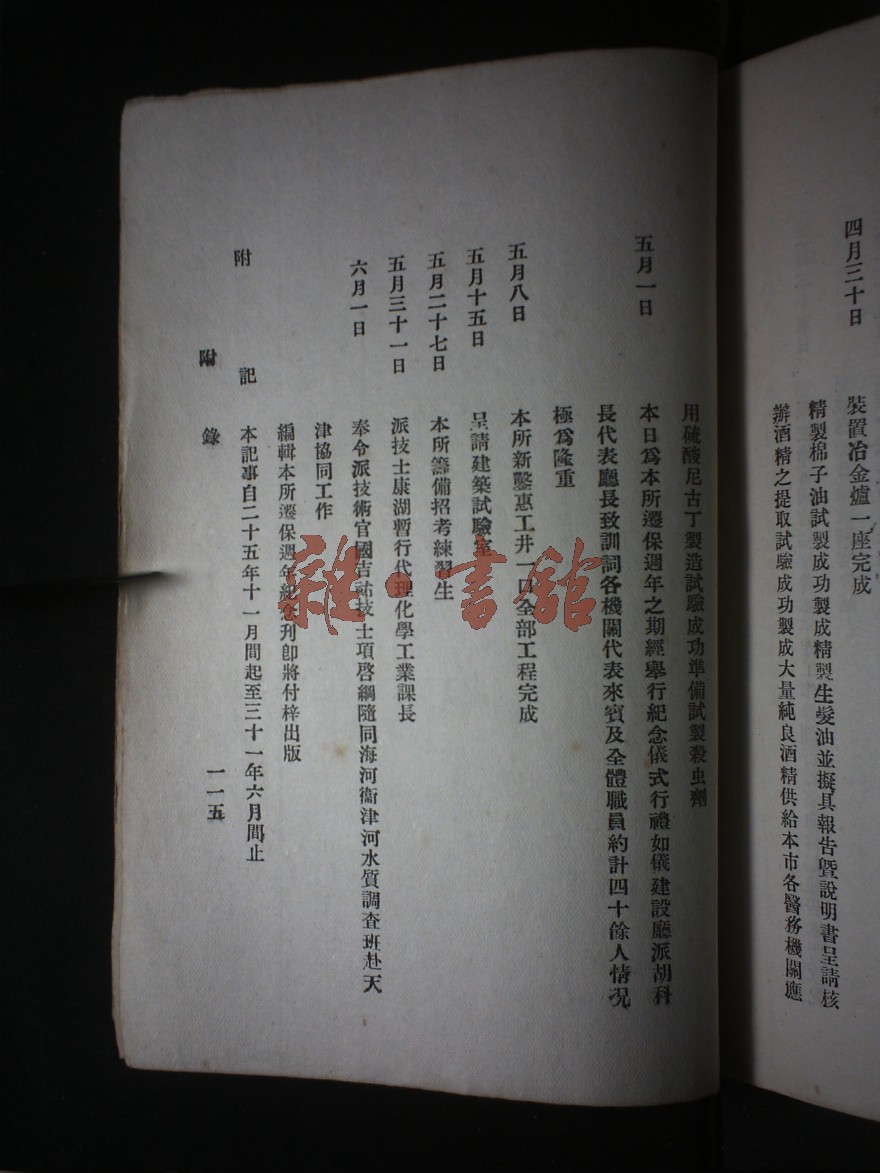 四月三十日
裝置冶金爐一座完成
精製棉子油試製成功製成精製生髮油並擬具報告暨說明書呈請核
辦酒精之提取試驗成功製成大量純良酒精供給本市各醫務機關應
用硫酸尼古丁製造試驗成功準備試製殺虫劑
五月一日
本日爲本所遷保週年之期經舉行紀念儀式行禮如儀建設廳派胡科
長代表廳長致訓詞各機關代表來賓及全體職員約計四十餘人情況
極爲隆重
五月八日
本所新鑿惠工井一口全部工程完成
五月十五日
呈請建築試驗室
五月二十七日
本所籌備招考練習生
五月三十一日
派技士康湖暫行代理化學工業課長
六月一日
奉令派技術官國吉祐技士項啓綱隨同海河衞津河水質調查班赴天
津協同工作
編輯本所遷保週年紀念刊卽將付梓出版
附記
本記事自二十五年十一月間起至三十一年六月間止
附錄
一一五
雜·書館